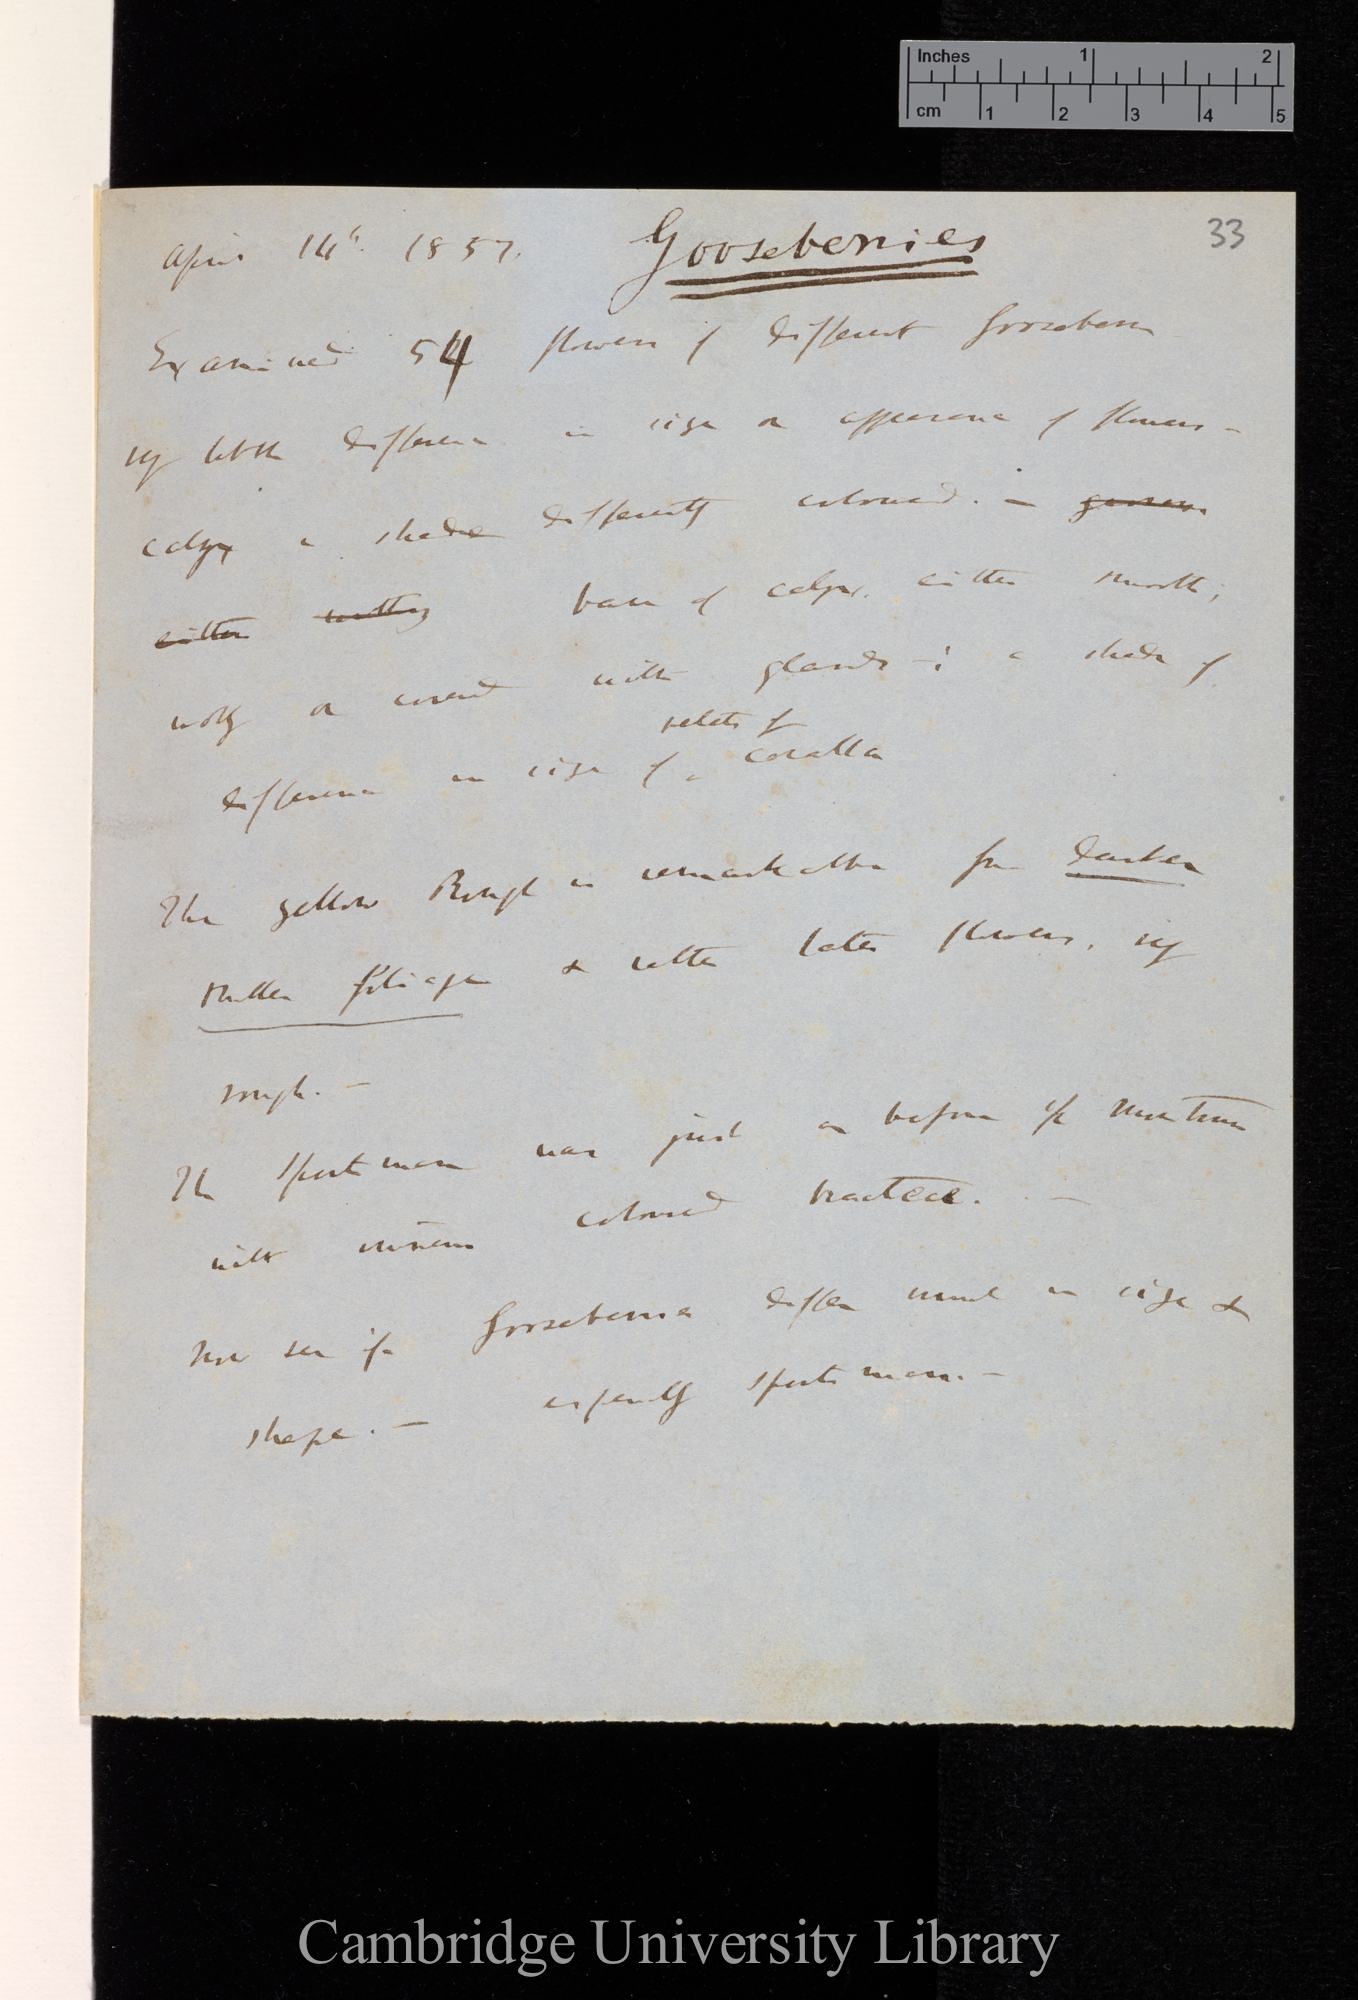 Inches 1 2
cm 1 2 3 4 5
33
April 14th. 1857. Gooseberries
Examined 54 flowers of different Gooseberry
very little difference in size or appearance of flowers —
calyx a shade differently coloured. —
either base of calyx either smooth;
wolly or covered with glands —; a shade of
petals of
difference in size of corolla
The yellow Rough is remarkable for darker
smaller foliage & rather later flowers, very
rough. —
The Sportsman was just as before if
with coloured bracteæ. —
Now see if Gooseberries differ much in size &
shape. — especially Sportsman. —
Cambridge University Library